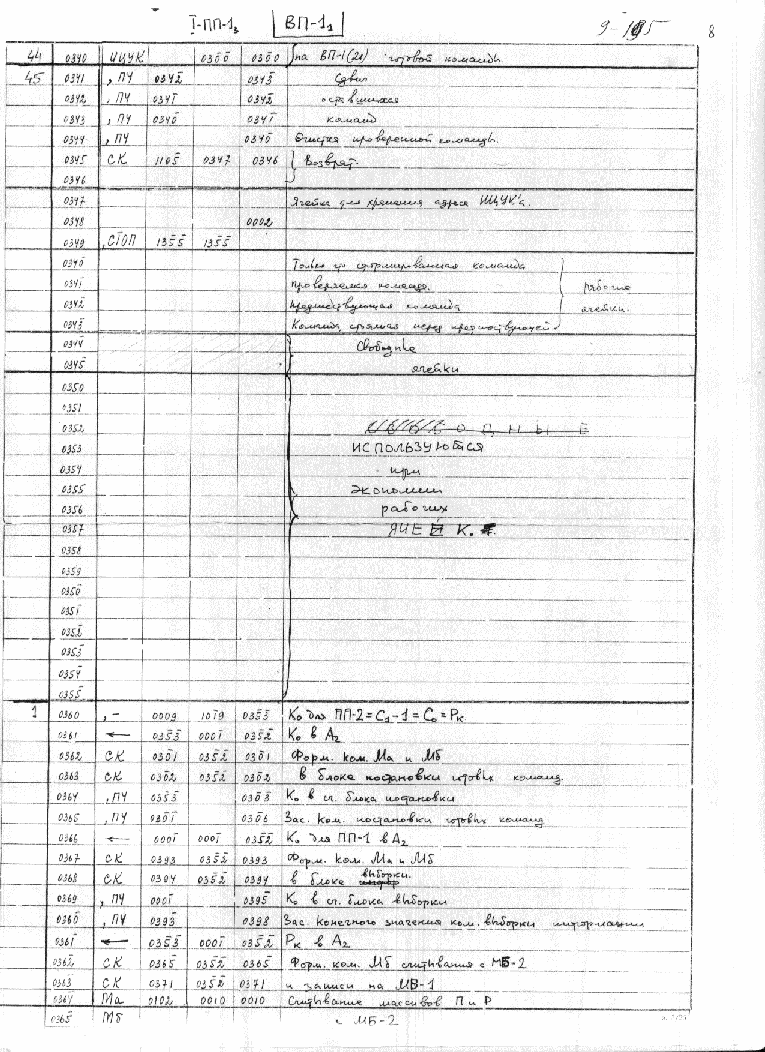 I-ПП-1₃ ВП-1₁ 8
44 0340 ИЦУК 0300 0300 на ВП-1(21) готовой команды
45 0341 , ПЧ 0342̅ 0343̅ Сдвиг
0342 , ПЧ 0341̅ 0342̅ оставшихся
0343 , ПЧ 0340̅ 0341̅ команд
0344 , ПЧ 0340̅ Очистка проверенной команды.
0345 СК 1105 0347 0346 Возврат.
0346
0347 Ячейка для хранения адреса ИЦУК'а.
0348 0002
0349 , СТОП 1355 1355
0340̅ Только что сформированная команда
0341̅ проверяемая команда. рабочие
0342̅ предшествующая команда ячейки.
0343̅ Команда стоящая перед предшествующей
0344̅ Свободные
0345̅ ячейки
0350
0351
0352
0353 ИСПОЛЬЗУЮТСЯ
0354 при
0355 экономии
0356 рабочих
0357 ЯЧЕЕК.
0358
0359
0350̅
0351̅
0352̅
0353̅
0354̅
0355̅
1 0360 , - 0009 1019 0353̅ K₀ для ПП-2 = C₁-1 = C₀ = Pк
0361 ← 0353̅ 0001̅ 0352̅ K₀ в A₂
0362 СК 0301 0352̅ 0301 Форм. ком. Ма и Мб
0363 СК 0302 0352̅ 0302 в блоке постановки готовых команд.
0364 , ПЧ 0353̅ 0303 K₀ в сч. блока постановки
0365 , ПЧ 0301̅ 0306 Зас. ком. постановки готовых команд
0366 ← 0001̅ 0001̅ 0352̅ K₀ для ПП-1 в A₂
0367 СК 0393 0352̅ 0393 Форм. ком. Ма и Мб
0368 СК 0394 0352̅ 0394 в блоке выборки.
0369 , ПЧ 0001̅ 0395 K₀ в сч. блока выборки
0360̅ , ПЧ 0393̅ 0398 Зас. конечного значения ком. выборки информации
0361̅ ← 0353̅ 0001̅ 0352̅ Pк в A₂
0362̅ СК 0365̅ 0352̅ 0365̅ Форм. ком. Мб считывания с МБ-2
0363̅ СК 0371 0352̅ 0371 и записи на МБ-1
0364̅ Ма 0102 0010 0010 Считывание массивов П и Р
0365̅ Мб с МБ-2